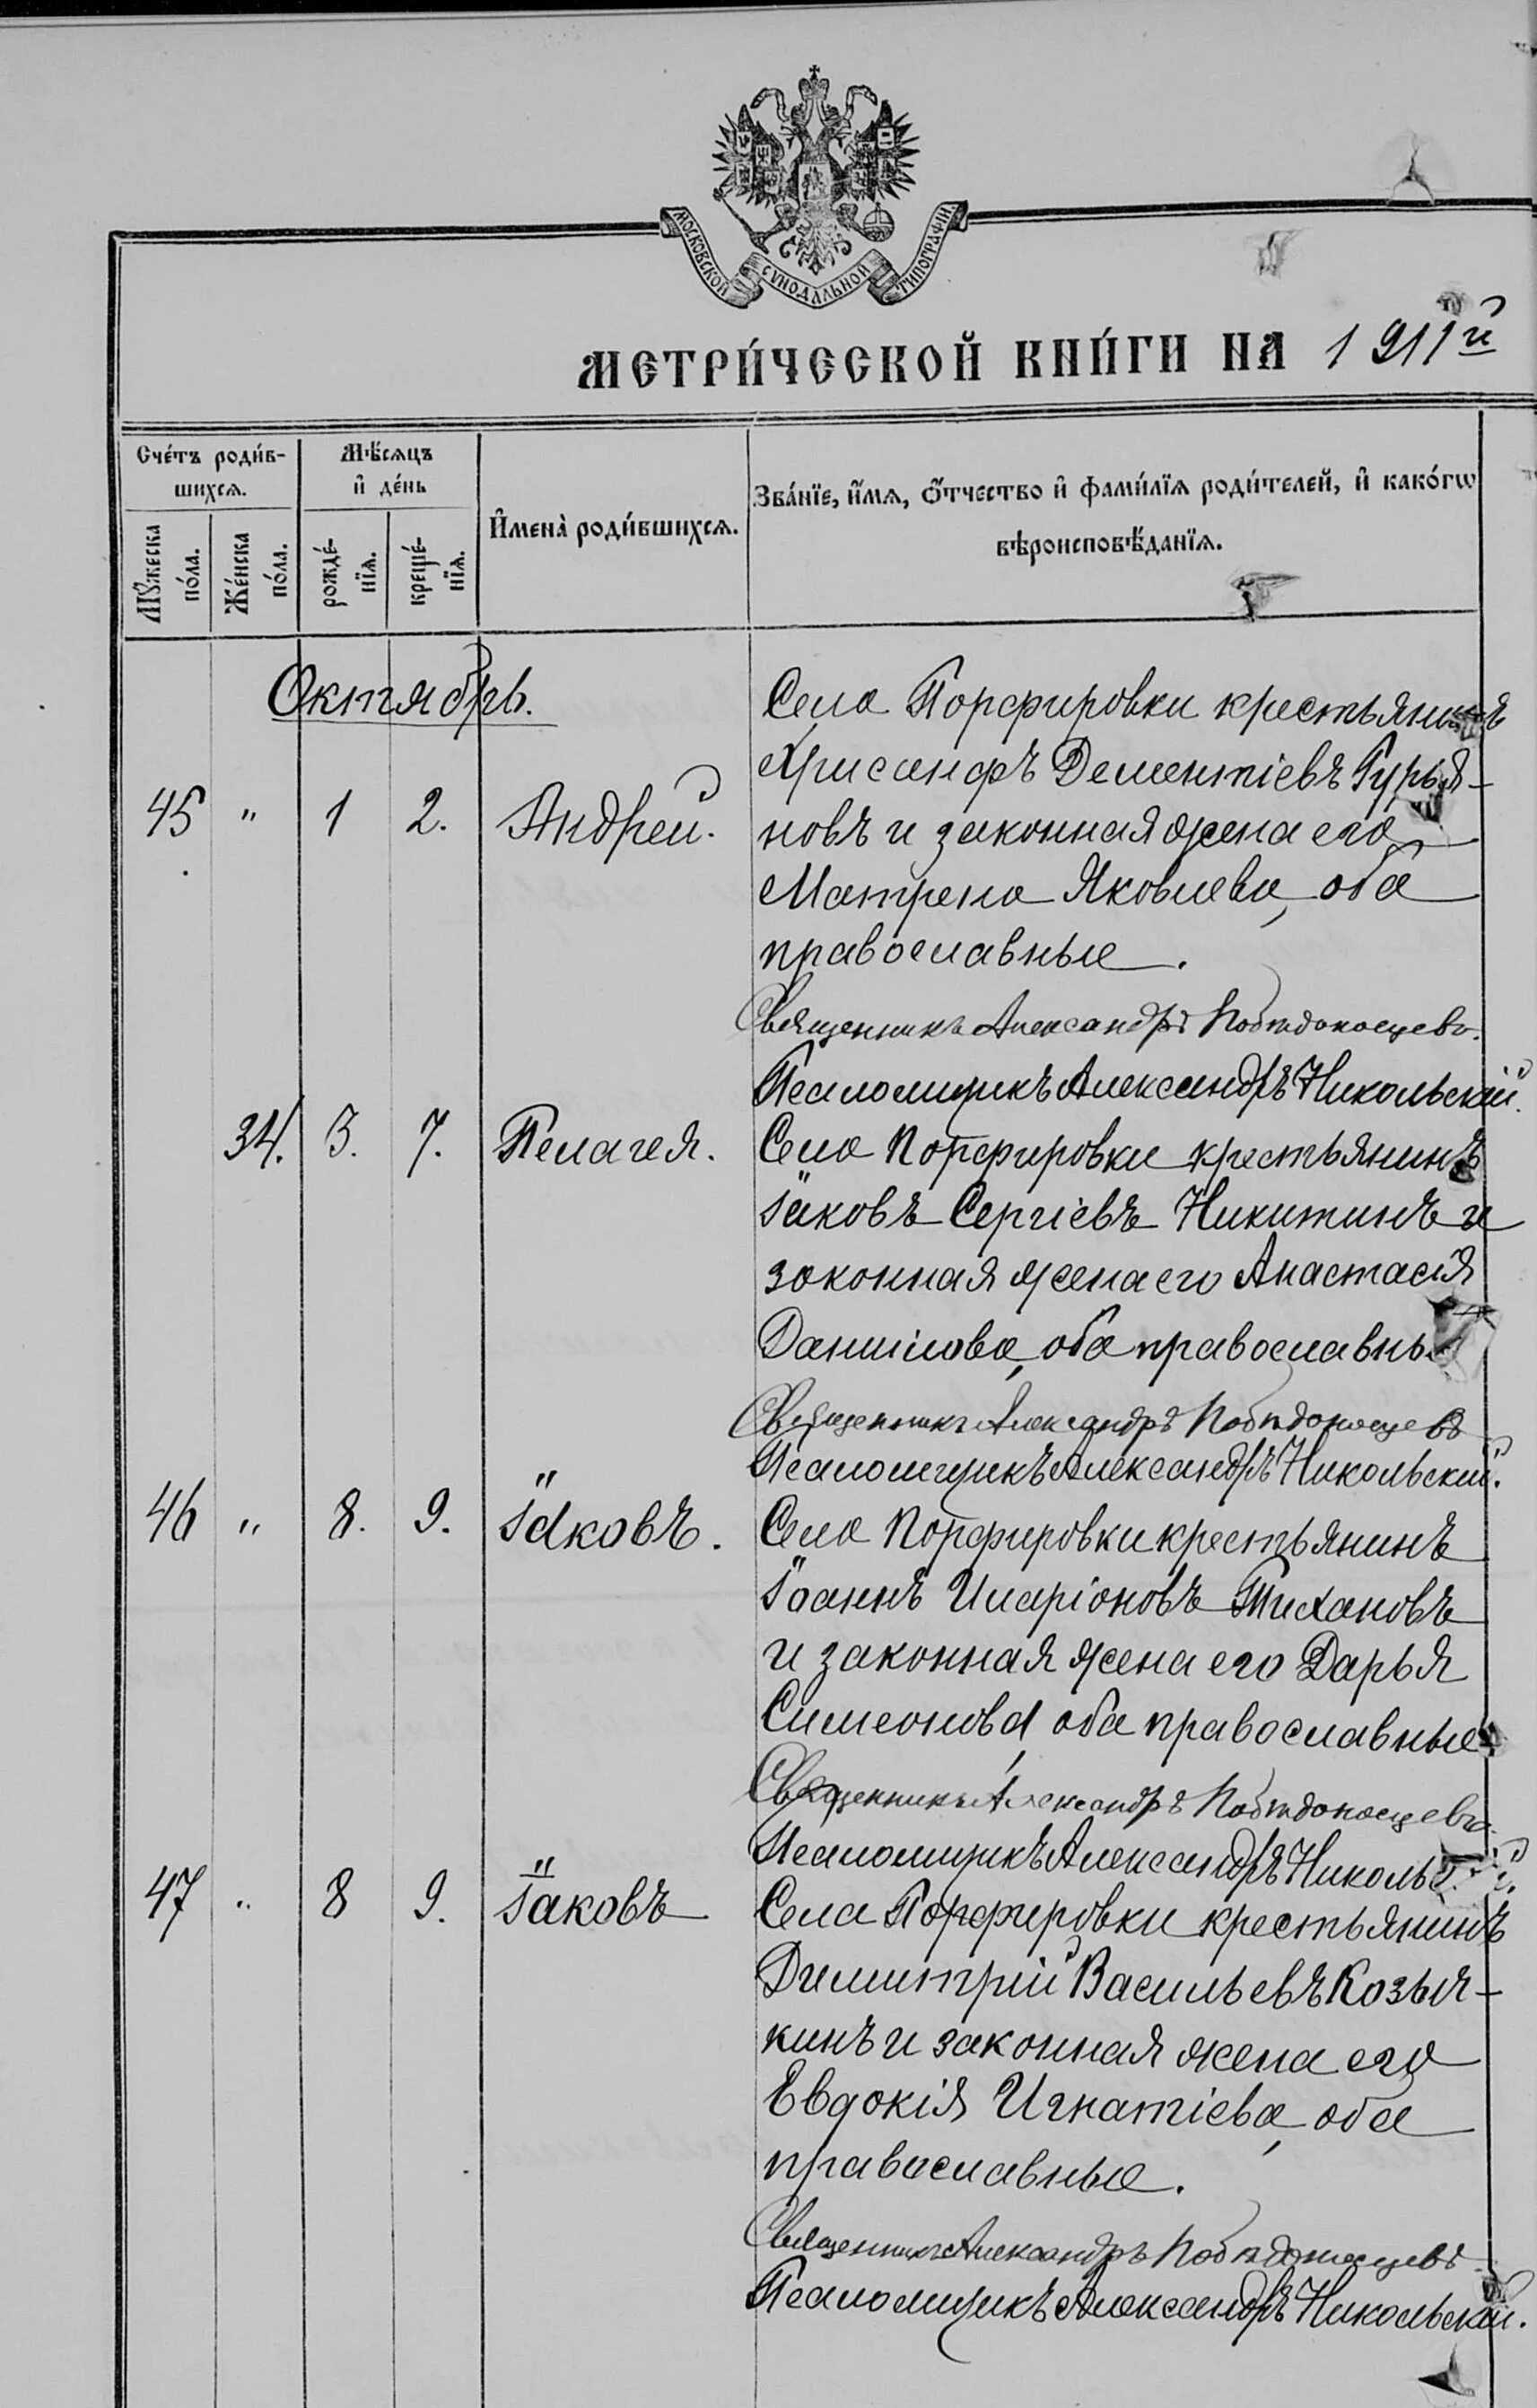 МОСКОВСКОЙ СѴНОДАЛЬНОЙ ТИПОГРАФІИ.
МЕТРИ́ЧЕСКОЙ КНИ́ГИ НА 1911й
Сче́тъ роди́в-
шихсѧ.
Мѣ́сѧцъ
и҆ де́нь
И҆мена̀ роди́вшихсѧ.
Зва́нїе, и҆́мѧ, ѻ҆́тчество и҆ фами́лїѧ роди́телей, и҆ како́гѡ
вѣроисповѣ́данїѧ.
Мꙋ́жеска
по́ла.
Же́нска
по́ла.
рожде́-
нїѧ.
креще́-
нїѧ.
Октябрь.
Села Порфировки крестьянинъ
Хрисанфъ Дементіевъ Гурья-
45 " 1 2. Андрей. новъ и законная жена его
Матрена Яковлева, оба
православные.
Священникъ Александръ Побѣдоносцевъ.
Псаломщикъ Александръ Никольскій.
34. 3. 7. Пелагея. Села Порфировки крестьянинъ
Іаковъ Сергіевъ Никитинъ и
законная жена его Анастасія
Данилова, оба православные
Священникъ Александръ Побѣдоносцевъ
Псаломщикъ Александръ Никольскій.
46 " 8. 9. Іаковъ. Села Порфировки крестьянинъ
Іоаннъ Иларіоновъ Тихановъ
и законная жена его Дарья
Симеонова, оба православные.
Священникъ Александръ Побѣдоносцевъ.
Псаломщикъ Александръ Никольскій.
47 " 8 9. Іаковъ Села Порфировки крестьянинъ
Димитрій Васильевъ Козыч-
кинъ и законная жена его
Евдокія Игнатіева, оба
православные.
Священникъ Александръ Побѣдоносцевъ
Псаломщикъ Александръ Никольскій.